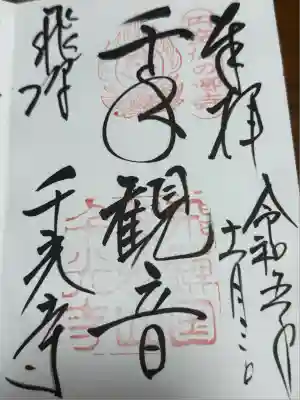 奉拝
令和五年
十一月三日
千手観音
飛騨
千光寺